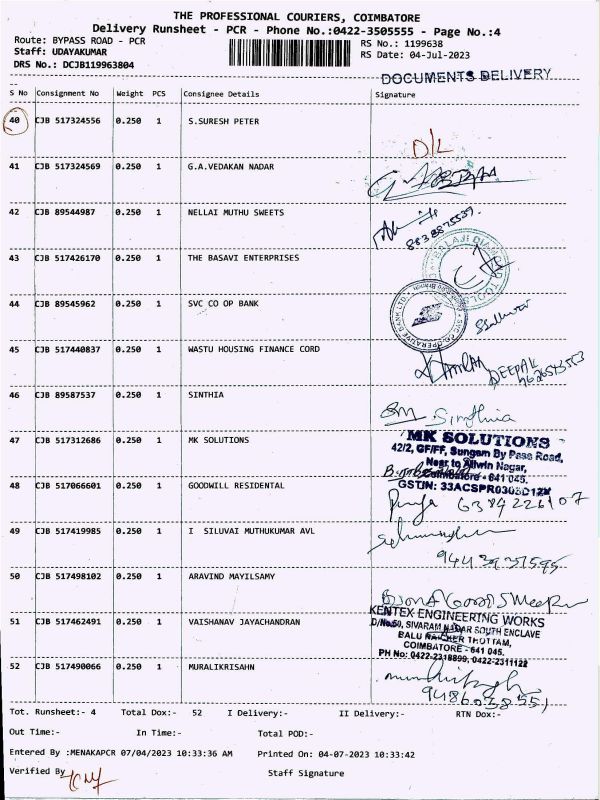 THE PROFESSIONAL COURIERS, COIMBATORE
Delivery Runsheet - PCR - Phone No.:0422-3505555 - Page No.:4
Route: BYPASS ROAD - PCR
Staff: UDAYAKUMAR
DRS No.: DCJB119963804
RS No.: 1199638
RS Date: 04-Jul-2023
DOCUMENTS DELIVERY
S No Consignment No Weight PCS Consignee Details Signature
40 CJB 517324556 0.250 1 S.SURESH PETER
D/L
41 CJB 517324569 0.250 1 G.A.VEDAKAN NADAR
42 CJB 89544987 0.250 1 NELLAI MUTHU SWEETS
8838875539.
43 CJB 517426170 0.250 1 THE BASAVI ENTERPRISES
BALAJI DIAMOND TOOLS
44 CJB 89545962 0.250 1 SVC CO OP BANK
SVC CO-OPERATIVE BANK LTD.
45 CJB 517440837 0.250 1 WASTU HOUSING FINANCE CORD
DEEPAK
46 CJB 89587537 0.250 1 SINTHIA
Sinthia
47 CJB 517312686 0.250 1 MK SOLUTIONS
MK SOLUTIONS
42/2, GF/FF, Sungam By Pass Road,
Near to Allwin Nagar,
Coimbatore - 641 045.
GSTIN: 33ACSPR0303D1ZV
48 CJB 517066601 0.250 1 GOODWILL RESIDENTAL
6384226107
49 CJB 517419985 0.250 1 I SILUVAI MUTHUKUMAR AVL
50 CJB 517498102 0.250 1 ARAVIND MAYILSAMY
51 CJB 517462491 0.250 1 VAISHANAV JAYACHANDRAN
KENTEX ENGINEERING WORKS
D/No.50, SIVARAM NADAR SOUTH ENCLAVE
BALU THOTTAM,
COIMBATORE - 641 045.
PH No: 0422-2318899, 0422-2311122
52 CJB 517490066 0.250 1 MURALIKRISAHN
Tot. Runsheet:- 4 Total Dox:- 52 I Delivery:- II Delivery:- RTN Dox:-
Out Time:- In Time:- Total POD:-
Entered By :MENAKAPCR 07/04/2023 10:33:36 AM Printed On: 04-07-2023 10:33:42
Verified By Staff Signature